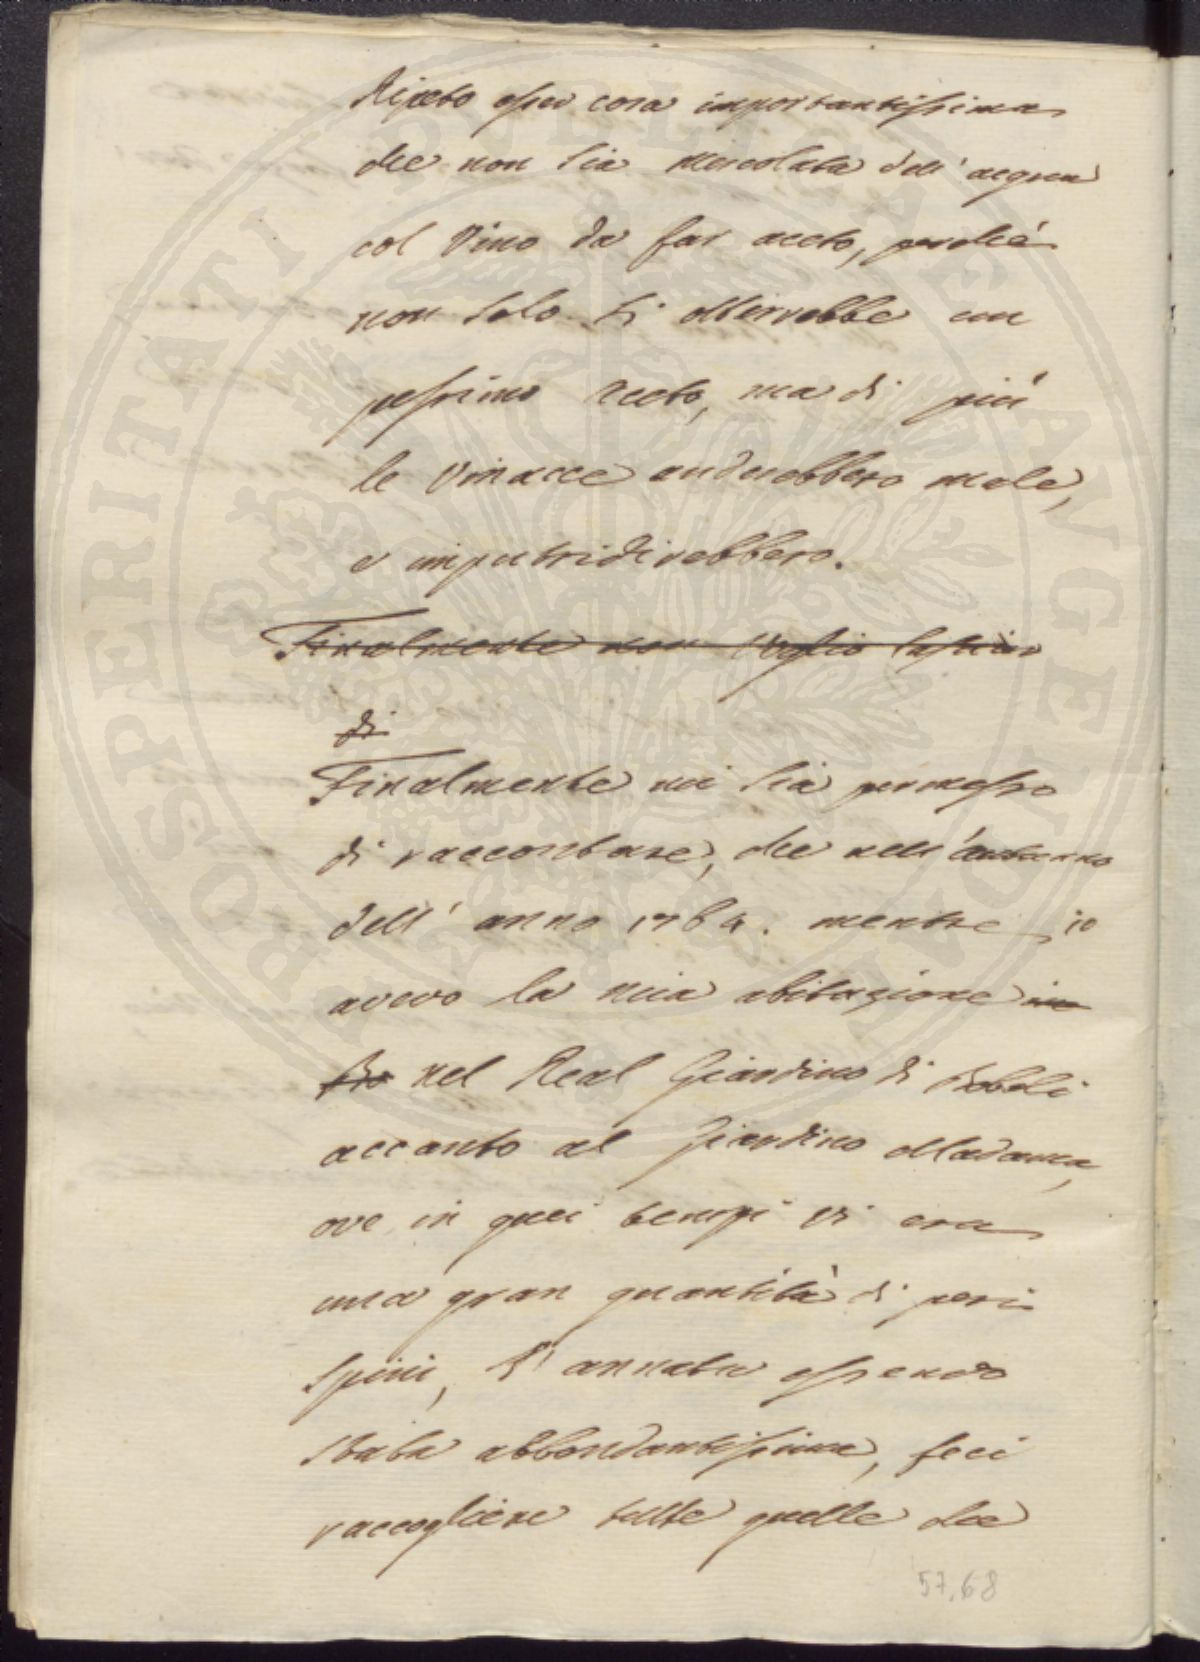 Ripeto esser cosa importantissima
che non sia mescolata dell'acqua
col Vino da far aceto, perchè
non solo si otterrebbe un
pessimo Aceto, ma di più
le Vinacce anderebbero male,
e imputridirebbero.
Finalmente non voglio lasciar
di
Finalmente mi sia permesso
di raccontare, che nell'autunno
dell'anno 1764. mentre io
avevo la mia abitazione in
Bo nel Real Giardino di Boboli
accanto al Giardino Madama,
ove in quei tempi vi era
una gran quantità di peri
spini, l'annata essendo
stata abbondantissima, feci
raccogliere tutte quelle che
57.68
PROSPERITATI PVBLICAE AVGENDAE